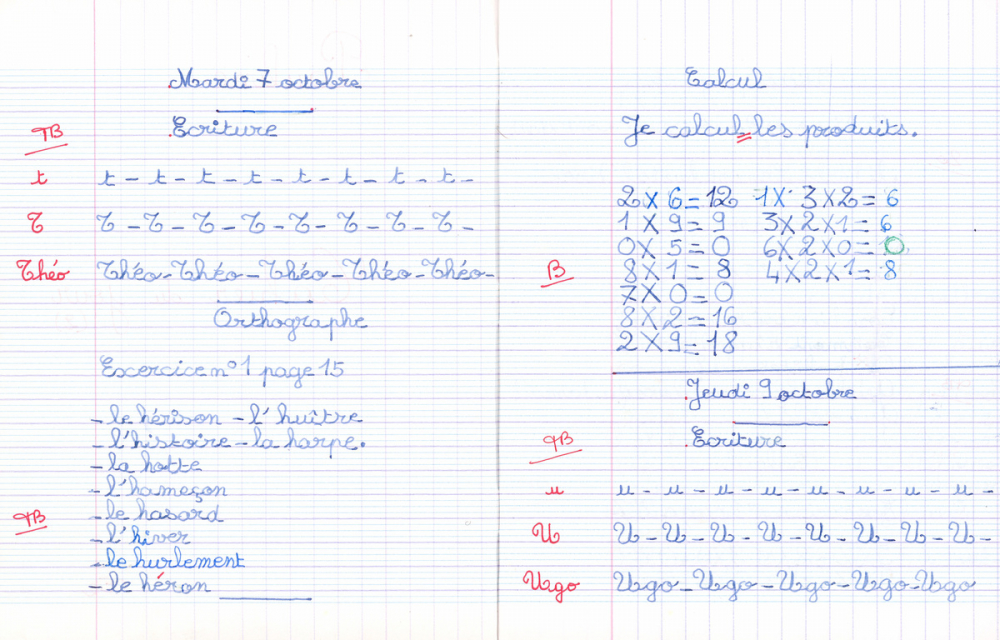 Mardi 7 octobre
TB Ecriture
t t - t - t - t - t - t - t - t -
T T - T - T - T - T - T - T - T -
Théo Théo - Théo - Théo - Théo - Théo -
Orthographe
Excercice n°1 page 15
- le hérison - l'huître
- l'histoire - la harpe.
- la hotte
- l'hameçon
TB - le hasard
- l'hiver
- le hurlement
- le héron
Calcul
Je calcul les produits.
2 X 6 = 12 1 X 3 X 2 = 6
1 X 9 = 9 3 X 2 X 1 = 6
0 X 5 = 0 6 X 2 X 0 = 0
B 8 X 1 = 8 4 X 2 X 1 = 8
7 X 0 = 0
8 X 2 = 16
2 X 9 = 18
Jeudi 9 octobre
TB Ecriture
u u - u - u - u - u - u - u - u -
U U - U - U - U - U - U - U - U -
Ugo Ugo - Ugo - Ugo - Ugo - Ugo